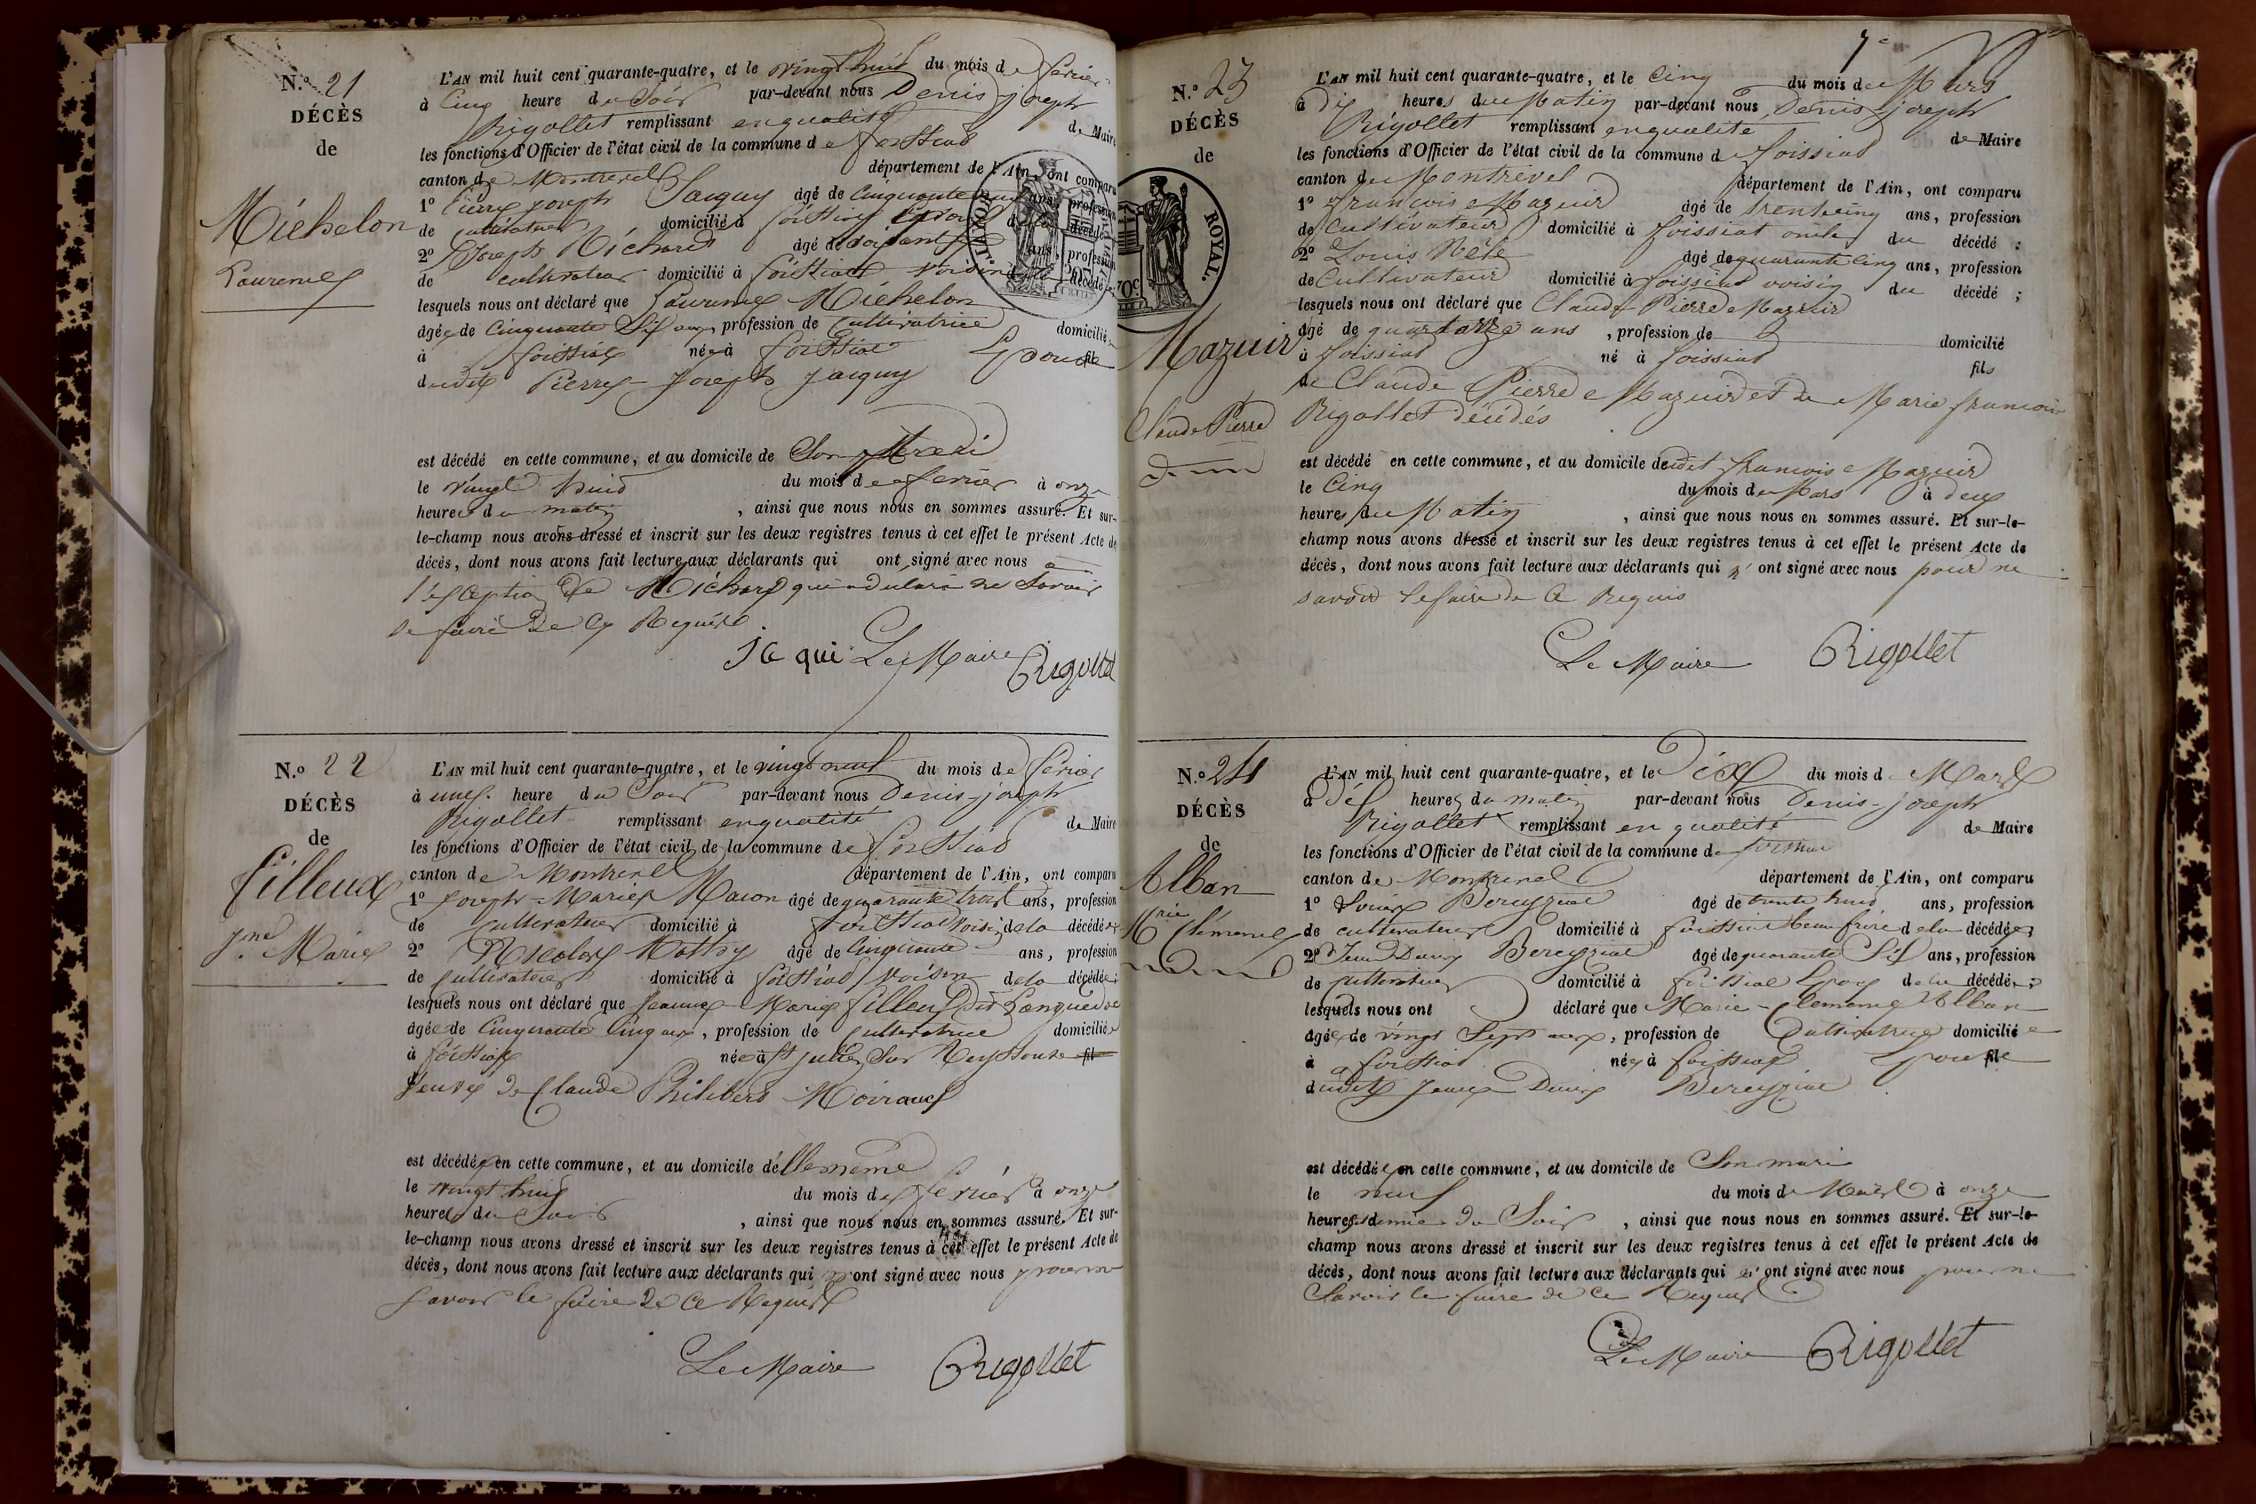 N.o 21
DÉCÈS
de
Michelon
Laurence
L'AN mil huit cent quarante-quatre, et le vingt huit du mois de ferier
à Cinq heure du Soir par-devant nous Denis joseph
Rigollet remplissant en qualité de Maire
les fonctions d'Officier de l'état civil de la commune de foissiat
canton de Montrevel département de l'Ain, ont comparu
1o Pierre joseph Jacquy agé de Cinquante ans, profession
de cultivateur domicilié à foissiat Epoux de la décédée
2o Joseph Michard agé de soixante ans, profession
de cultivateur domicilié à foissiat voisin décédée
lesquels nous ont déclaré que Laurence Michelon
agée de Cinquante Six ans, profession de Cultivatrice domiciliée
à foissiat née à foissiat Epouse fil
dudit Pierre-Joseph Jacquy
est décédé en cette commune, et au domicile de Son Maredi
le vingt huit du mois de ferier à onze
heures du matin, ainsi que nous nous en sommes assuré. Et sur-
le-champ nous avons dressé et inscrit sur les deux registres tenus à cet effet le présent Acte de
décès, dont nous avons fait lecture aux déclarants qui ont signé avec nous a
l'exception de Michard qui a déclaré ne Savoir
le faire de ce Requéré
jaqui Le Maire Rigollet
N.o 22
DÉCÈS
de
filleux
jne Marie
L'AN mil huit cent quarante-quatre, et le vingt neuf du mois de férier
à une heure du Soir par-devant nous Denis-joseph
Rigollet remplissant en qualité de Maire
les fonctions d'Officier de l'état civil de la commune de foissiat
canton de Montrevel département de l'Ain, ont comparu
1o joseph-Marie Macon agé de quarante trois ans, profession
de cultivateur domicilié à foissiat voisin de la décédée
2o Nicolas agé de Cinquante ans, profession
de Cultivateur domicilié à foissiat voisin de la décédée;
lesquels nous ont déclaré que jeanne Marie filleux dit
agée de Cinquante Cinq ans, profession de Cultivatrice domiciliée
à foissiat née à St julien Sur Reyssouse fil
veuve de Claude Philibert Moiraud
est décédée en cette commune, et au domicile d'ellemême
le vingt huit du mois de ferier à onze
heures du Soir, ainsi que nous nous en sommes assuré. Et sur-
le-champ nous avons dressé et inscrit sur les deux registres tenus à cet effet le présent Acte de
décès, dont nous avons fait lecture aux déclarants qui n'ont signé avec nous pour ne
savoir le faire de ce Requéré
Le Maire Rigollet
7e
N.o 23
DÉCÈS
de
TIMBRE ROYAL.
70c
Mazuir
Claude Pierre
L'AN mil huit cent quarante-quatre, et le Cinq du mois de Mars
à Dix heures du Matin par-devant nous Denis joseph
Rigollet remplissant en qualité de Maire
les fonctions d'Officier de l'état civil de la commune de foissiat
canton de Montrevel département de l'Ain, ont comparu
1o François Mazuir agé de trente cinq ans, profession
de Cultivateur domicilié à foissiat oncle du décédé;
2o Louis agé de quarante cinq ans, profession
de Cultivateur domicilié à foissiat voisin du décédé;
lesquels nous ont déclaré que Claude Pierre Mazuir
agé de quartorze ans, profession de domicilié
à foissiat né à foissiat fils
de Claude Pierre Mazuir et de Marie francoise
Rigollet décédés
est décédé en cette commune, et au domicile dudit francois Mazuir
le Cinq du mois de Mars à deux
heures du Matin, ainsi que nous nous en sommes assuré. Et sur-le-
champ nous avons dressé et inscrit sur les deux registres tenus à cet effet le présent Acte de
décès, dont nous avons fait lecture aux déclarants qui n'ont signé avec nous pour ne
savoir le faire de ce Requis
Le Maire Rigollet
N.o 24
DÉCÈS
de
Alban
Mrie Clémence
L'AN mil huit cent quarante-quatre, et le Dix du mois de Mars
à Dix heures du matin par-devant nous Denis-joseph
Rigollet remplissant en qualité de Maire
les fonctions d'Officier de l'état civil de la commune de foissiat
canton de Montrevel département de l'Ain, ont comparu
1o Louis Bereyziat agé de trente huit ans, profession
de cultivateur domicilié à foissiat beau frère de la décédée;
2o Jean Denis Bereyziat agé de quarante Six ans, profession
de cultivateur domicilié à foissiat Epoux de la décédée;
lesquels nous ont déclaré que Marie-Clémence Alban
agée de vingt Sept ans, profession de Cultivatrice domiciliée
à foissiat née à foissiat Epouse fil
dudit Jean Denis Bereyziat
est décédée en cette commune, et au domicile de Son mari
le neuf du mois de Mars à onze
heures demie du Soir, ainsi que nous nous en sommes assuré. Et sur-le-
champ nous avons dressé et inscrit sur les deux registres tenus à cet effet le présent Acte de
décès, dont nous avons fait lecture aux déclarants qui n'ont signé avec nous pour ne
Savoir le faire de ce Requis
Le Maire Rigollet